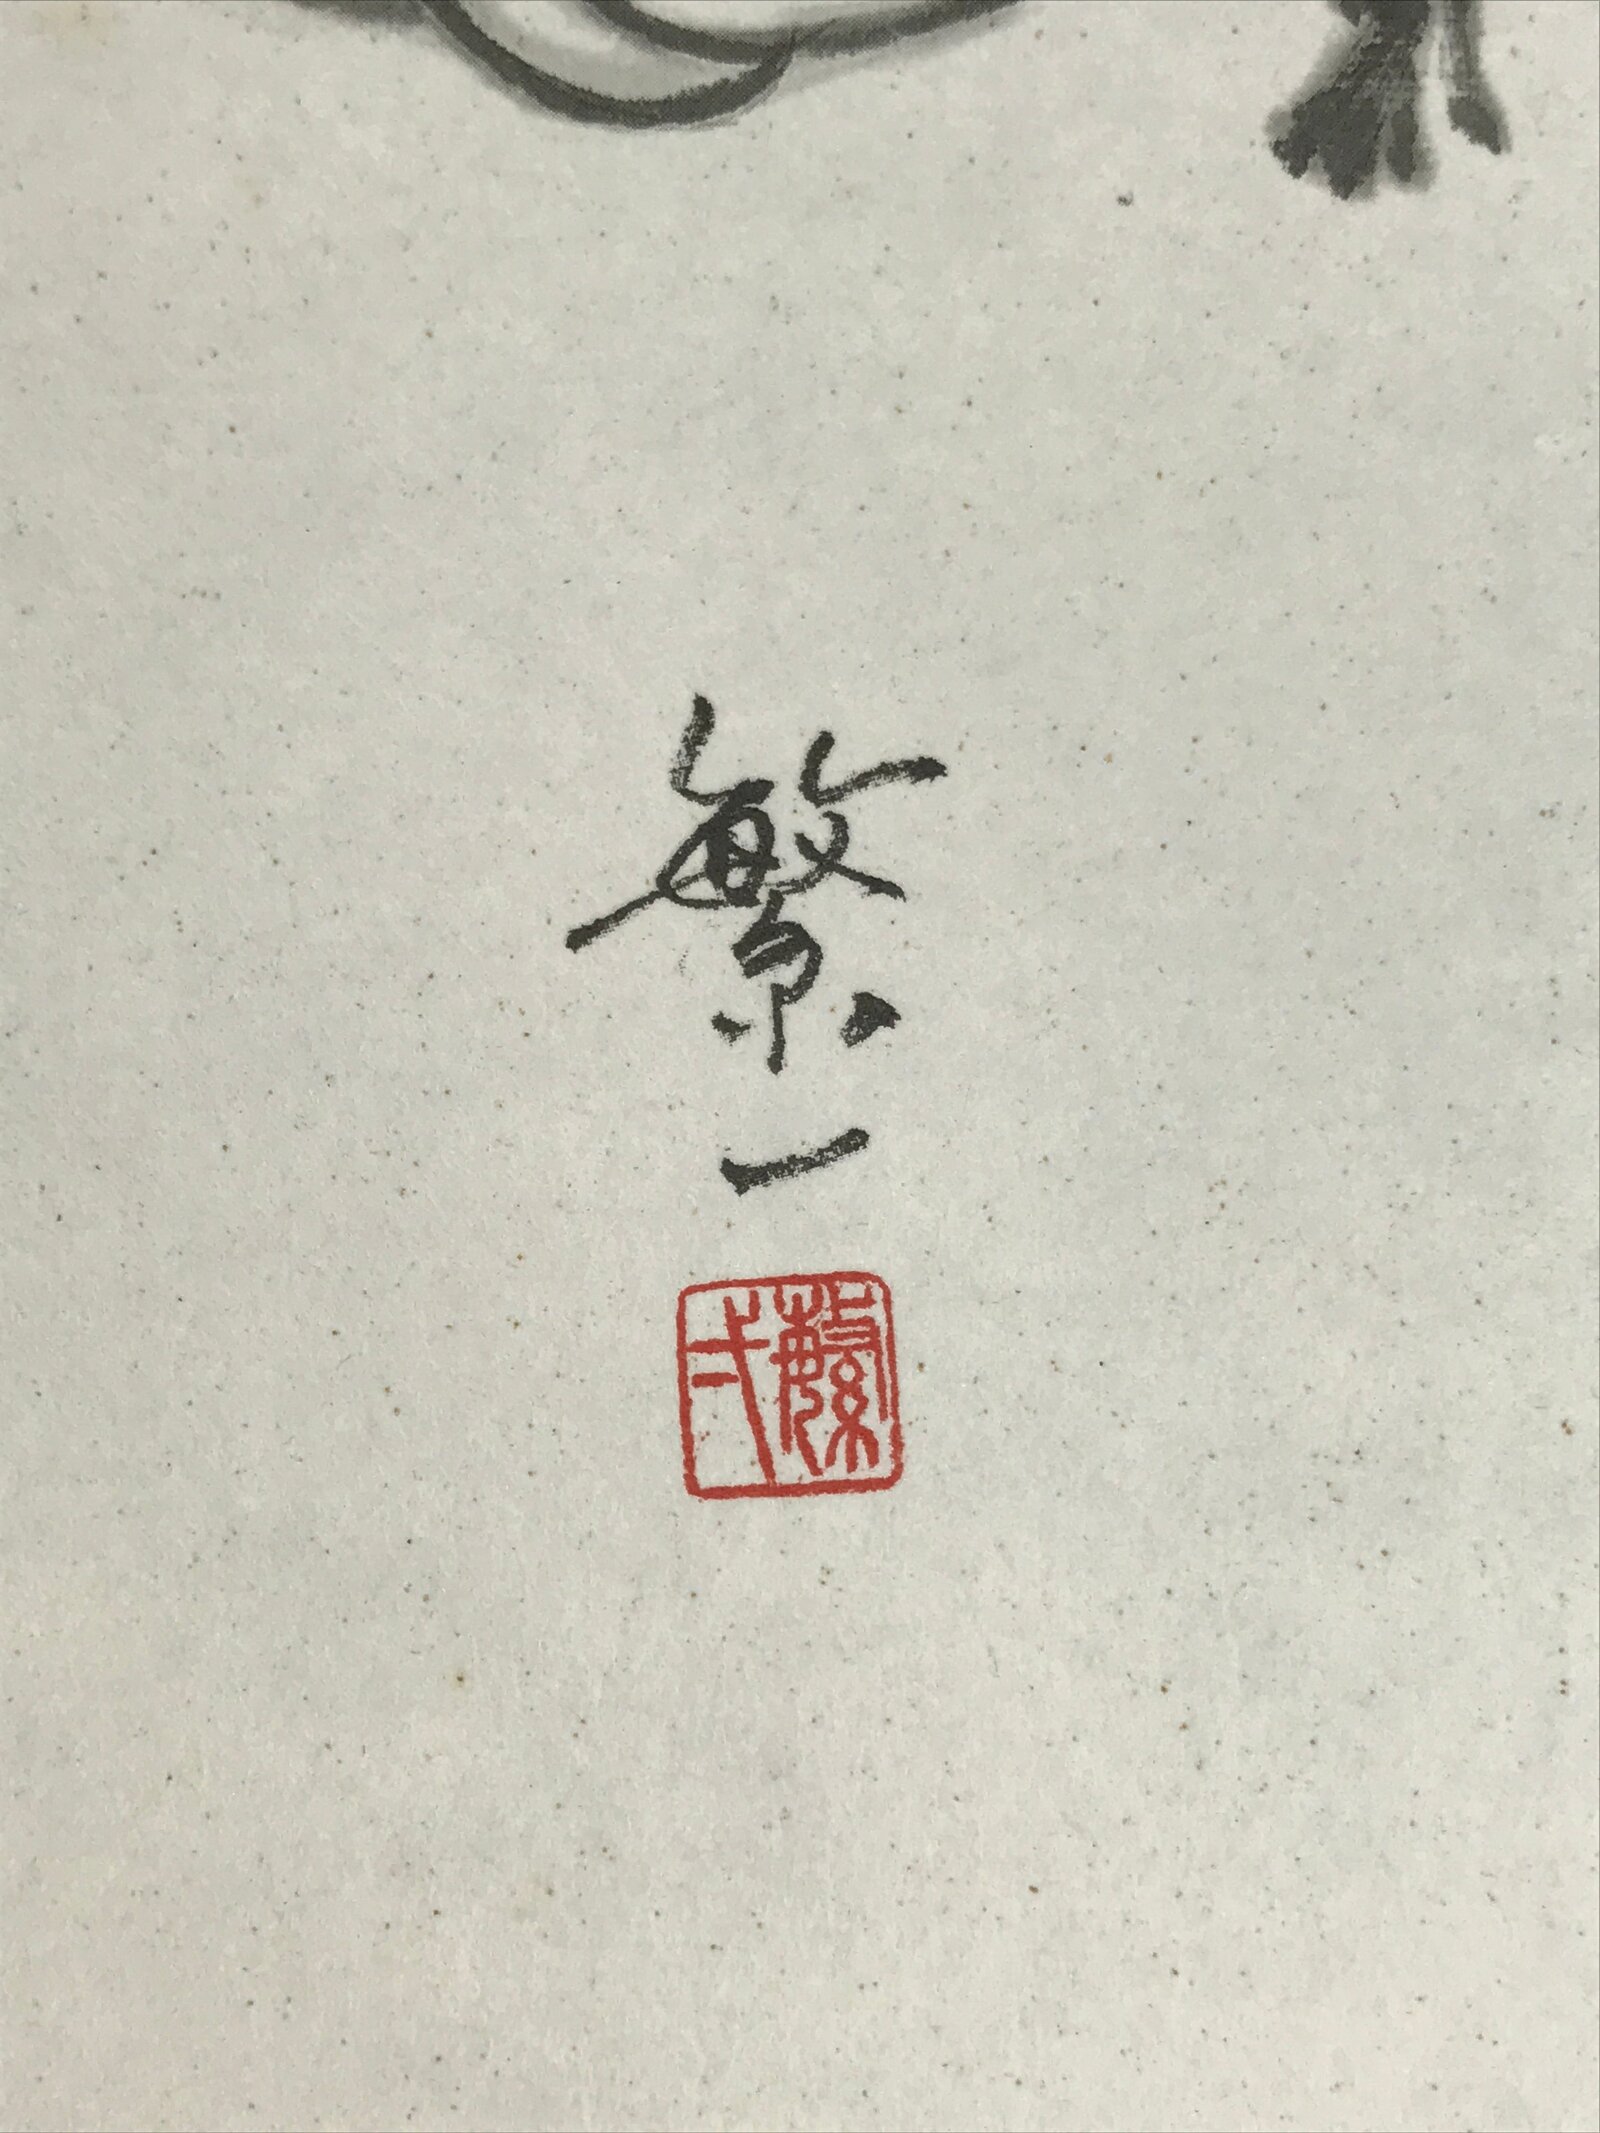 繁一
繁弌